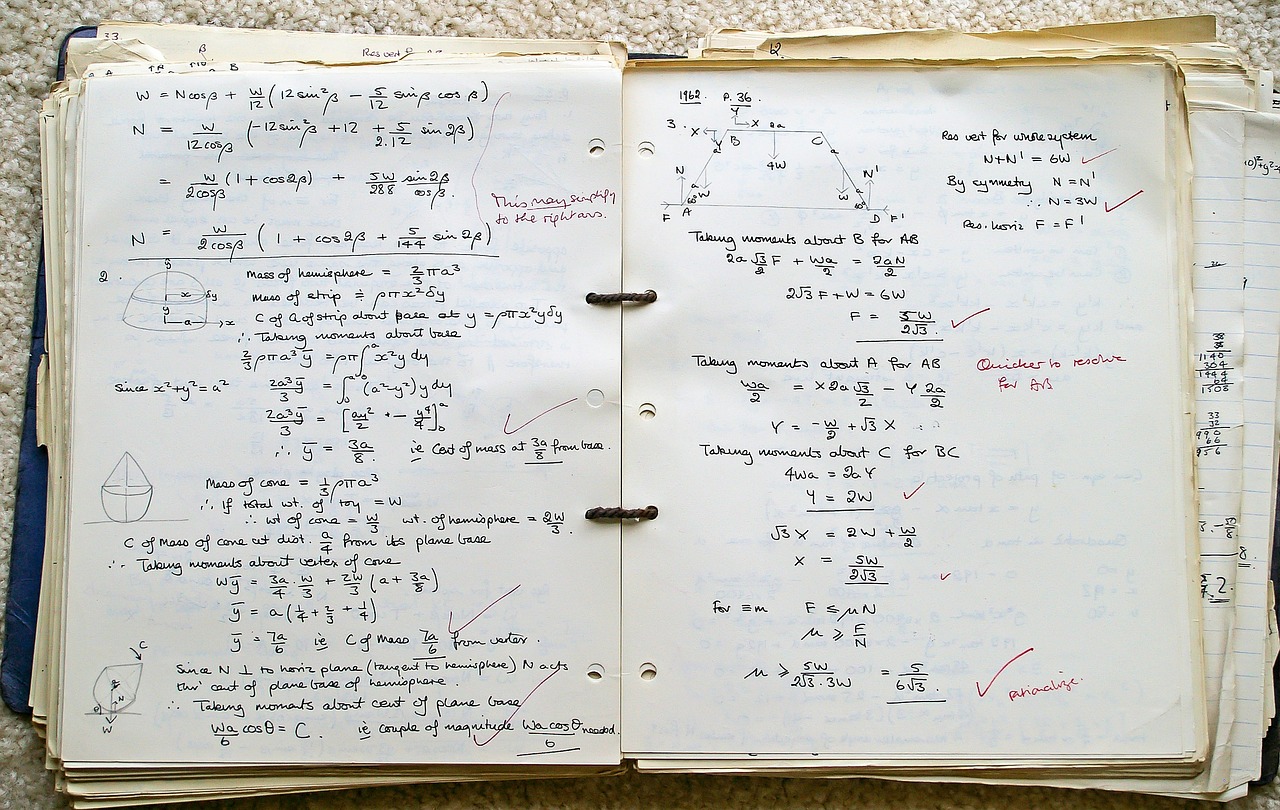 33.
β
Res vert
B
W = Ncosβ + W/12 (12sin²β − 5/12 sinβ cosβ)
N = W/12cosβ (−12sin²β + 12 + 5/2.12 sin2β)
= W/2cosβ (1 + cos2β) + 5W/288 sin2β/cosβ.
This may simplify
to the right ans.
N = W/2cosβ (1 + cos2β + 5/144 sin2β)
2.
y
x
δy
y
a
x
Mass of hemisphere = 2/3 πa³
Mass of strip ≑ ρπx²δy
C of G of strip about base at y = ρπx²yδy
∴ Taking moments about base
2/3 ρπa³ȳ = ρπ∫₀ᵃ x²y dy
since x²+y²=a² 2a³ȳ/3 = ∫₀ᵃ (a²−y²)y dy
2a³ȳ/3 = [ay²/2 − y⁴/4]₀ᵃ
∴ ȳ = 3a/8 ie Cent of mass at 3a/8 from base.
Mass of cone = 1/3 ρπa³
∴ If total wt. of toy = W
∴ wt of cone = W/3 wt. of hemisphere = 2W/3.
C of Mass of cone at dist. a/4 from its plane base
∴ Taking moments about vertex of cone
Wȳ = 3a/4 . W/3 + 2W/3 (a + 3a/8)
ȳ = a(1/4 + 2/3 + 1/4)
ȳ = 7a/6 ie C of Mass 7a/6 from vertex.
C
N
θ
W
Since N ⊥ to horiz plane (tangent to hemisphere) N acts
thro' cent of plane base of hemisphere.
∴ Taking moments about cent of plane base
Wa/6 cosθ = C. ie couple of magnitude Wa cosθ/6 needed.
12.
1962. P. 36.
3.
Y
X
X
2a
B
C
Y
a
a
4W
N
N'
a
W
W
a
60°
60°
F
A
D
F'
Res vert for whole system
N+N' = 6W
By symmetry N = N'
∴ N = 3W
Res. horiz F = F'
Taking moments about B for AB
2a √3/2 F + Wa/2 = 2aN/2
2√3 F + W = 6W
F = 5W/2√3.
Taking moments about A for AB
Quicker to resolve
for AB
Wa/2 = X 2a √3/2 − Y 2a/2
Y = −W/2 + √3 X
Taking moments about C for BC
4Wa = 2aY
Y = 2W
√3 X = 2W + W/2
X = 5W/2√3
For ≡m F ≤ μN
μ ≥ F/N
μ ≥ 5W/2√3.3W = 5/6√3.
rationalize.
38
38
1140
304
1444
64
1508
33
32
990
66
956